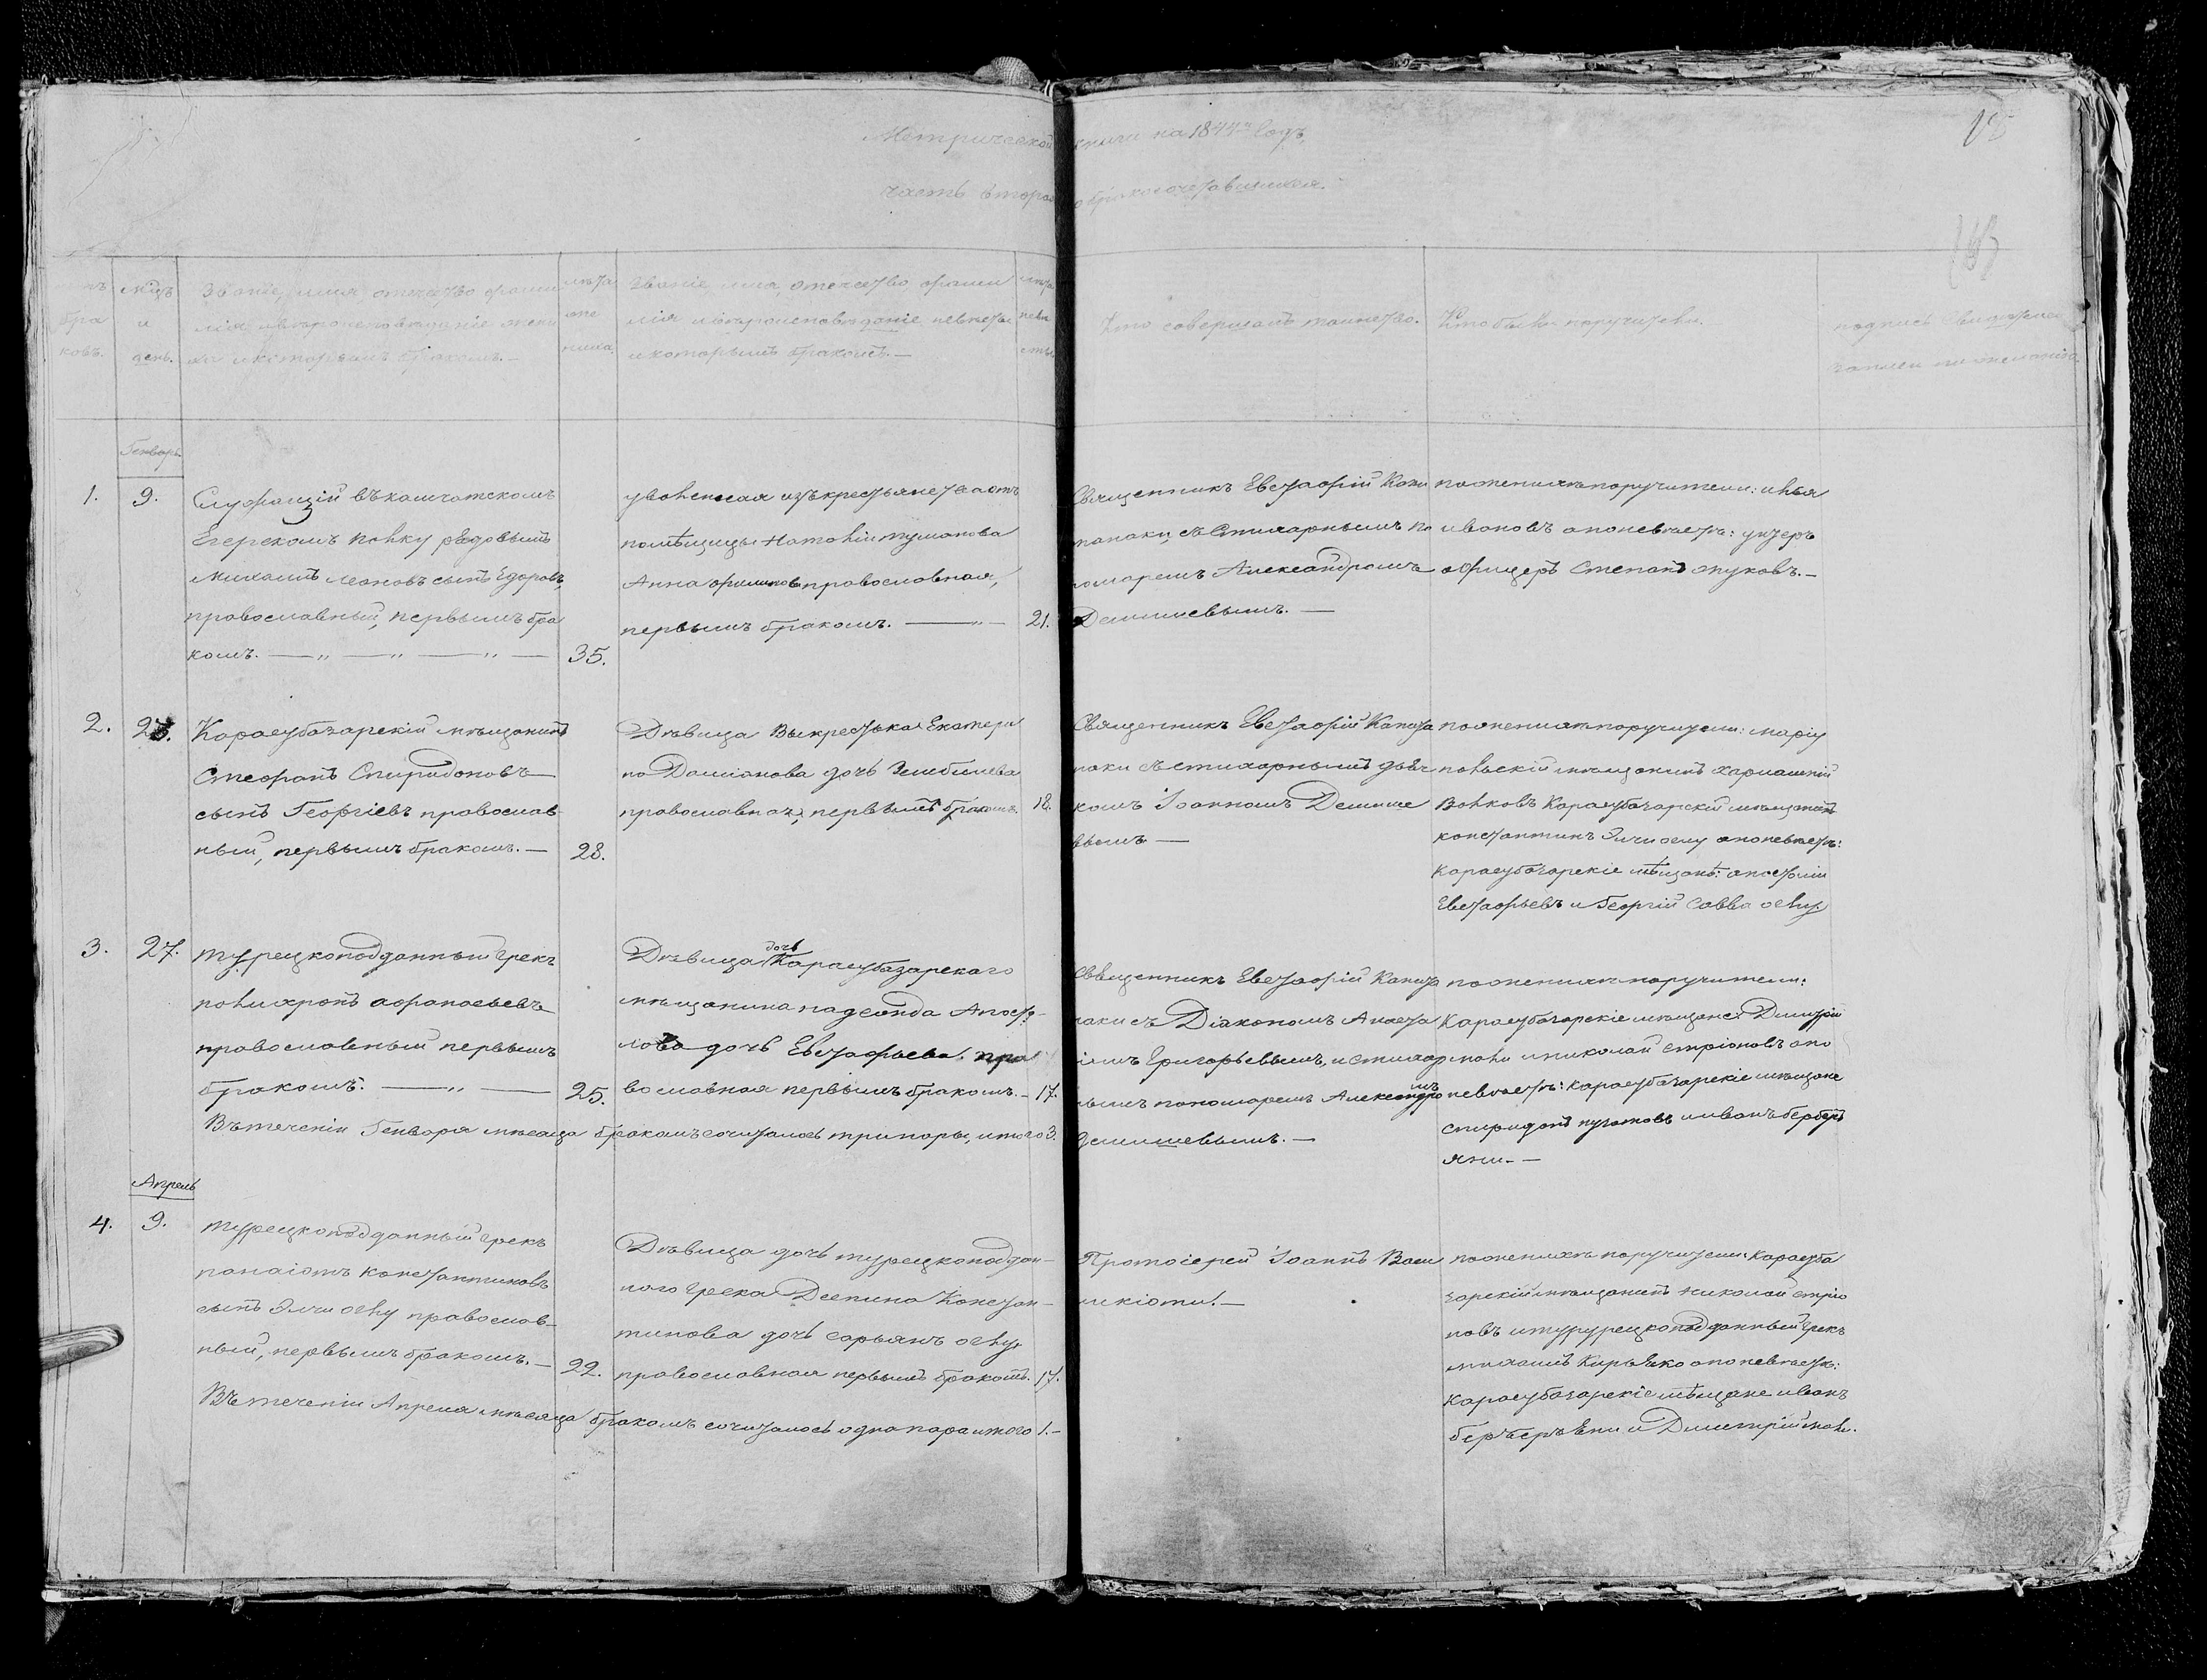 Метрической книги на 1844й Годъ,
часть вторая о бракосочетавшихся.
бра
ковъ.
мцъ
и
день.
Званіе, имя, отечество фами
лія и вѣроисповѣданіе жени
ха и которымъ бракомъ.—
лѣта
же
ниха.
Званіе, имя, отечество, фами
лія и вѣроисповѣданіе невѣсты
и которымъ бракомъ.—
лѣта
невѣ
сты.
Кто совершалъ таинство.
Кто были поручители.—
подпись свидѣтелей
записи по желанію.
Генварь
1.
9.
Служащій въ камчатскомъ
Егерскомъ полку рядовымъ
Михаилъ Леоновъ сынъ Едоровъ,
православный, первымъ бра
комъ. — „ — „ — „ — 35.
уволенная изъ крестьянства отъ
помѣщицы Наталіи тумановa
Анна православная,
первымъ бракомъ. — „ — 21.
Священникъ Евстафій Капи
танаки, съ Стихарнымъ По
номаремъ Александромъ
Демишевымъ. —
по женихѣ поручители: илья
ивановъ а по невѣстѣ: унтеръ
офицеръ Степанъ жуковъ.—
2.
Карасубазарскій мѣщанинъ
Стефанъ Спиридоновъ
сынъ Георгіевъ православ-
ный, первымъ бракомъ. — 28.
Дѣвица Выкрестька Екатери
на Даміанова дочь
православная, первымъ бракомъ. 18.
Священникъ Евстафій Капита
наки съ стихарнымъ дьяч
комъ Іоанномъ Демише
вымъ —
по женихѣ поручители: марiу
польскій мѣщанинъ харлампій
Волковъ Карасубазарскій мѣщанинъ
константинъ Элчи оглу а по невѣстѣ:
Карасубазарскіе мѣщанѣ: апостолъ
Евстафьевъ и Георгій Савва оглу
3.
27.
турецкоподданный грекъ
полихронъ афанасьевъ
православный первымъ
бракомъ. — „ — 25.
Дѣвица дочь Карасубазарскаго
мѣщанина Апосто-
лова дочь Евстафьева, пра
вославная первымъ бракомъ. — 17.
Священникъ Евстафій Капита
наки съ Діакономъ Анаста
сіемъ Григорьевымъ, и стихар
нымъ пономаремъ Александромъ
Демишевымъ. —
по женихѣ поручители:
Карасубазарскіе мѣщане: Димитрій
и николай стріоновъ а по
невѣстѣ: карасубазарскіе мѣщане
спиридонъ и иванъ бербер
яни. —
Въ теченіи Генваря мѣсяца бракомъ сочиталось три пары, итого 3.
Апрель
4.
9.
турецкоподданный грекъ
панаіотъ константиновъ
сынъ Элчи оглу православ-
ный, первымъ бракомъ. — 22.
Дѣвица дочь турецкоподдан-
наго грека Деспина Констан-
тинова дочь сарьянъ оглу
православная первымъ бракомъ. 17.
Протоіерей Іоаннъ Васи
ликіоти. —
по женихѣ поручители: карасуба
зарскій мѣщанинъ николай стріо
новъ и турурецкоподданный грекъ
михаилъ Кирьяко а по невѣстѣ:
Карасубазарскіе мѣщане иванъ
берберъ яни и Димитрій
Въ теченіи Апреля мѣсяца бракомъ сочиталось одна пара итого 1.—